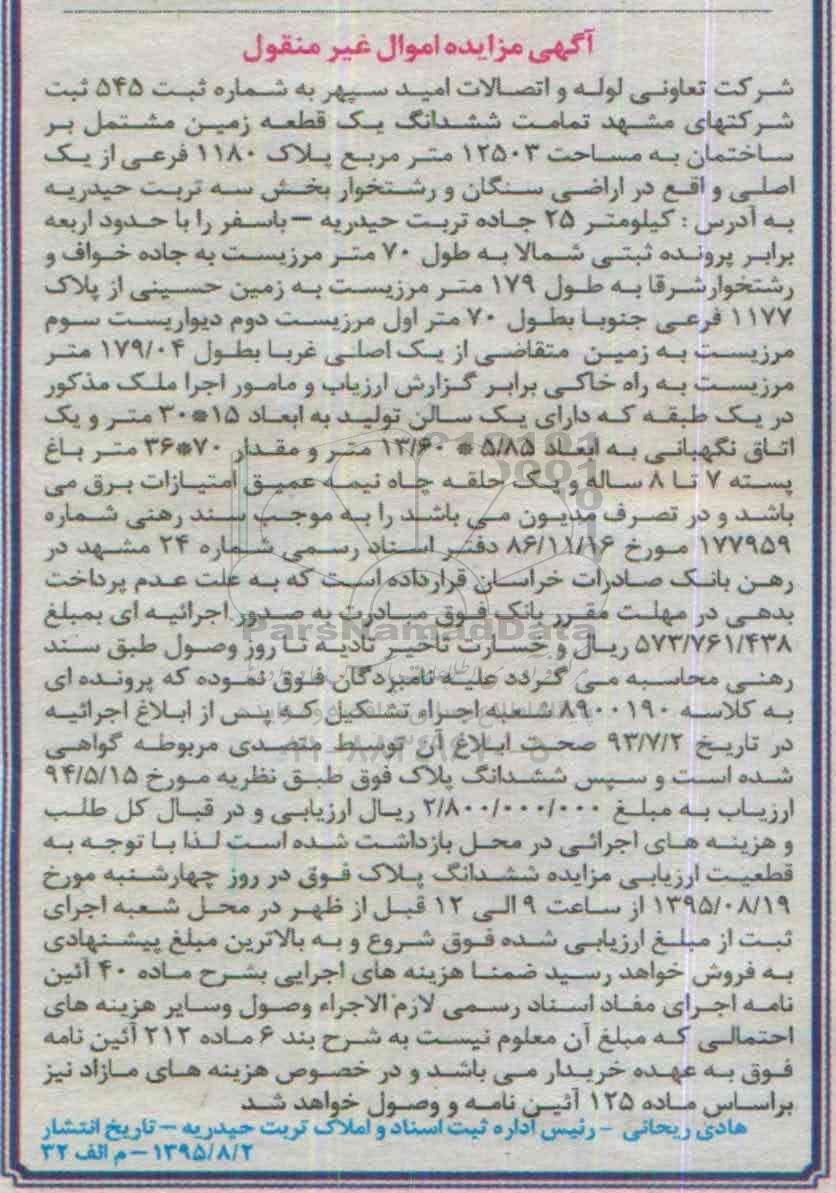 آگهی مزایده اموال غیر منقول
شرکت تعاونی لوله و اتصالات امید سپهر به شماره ثبت ۵۴۵ ثبت
شرکتهای مشهد تمامت ششدانگ یک قطعه زمین مشتمل بر
ساختمان به مساحت ۱۲۵۰۳ متر مربع پلاک ۱۱۸۰ فرعی از یک
اصلی و اقع در اراضی سنگان و رشتخوار بخش سه تربت حیدریه
به آدرس : کیلومتر ۲۵ جاده تربت حیدریه –باسفر را با حدود اربعه
برابر پرونده ثبتی شمالا به طول ۷۰ متر مرزیست به جاده خواف و
رشتخوارشرقا به طول ۱۷۹ متر مرزیست به زمین حسینی از پلاک
۱۱۷۷ فرعی جنوبا بطول ۷۰ متر اول مرزیست دوم دیواریست سوم
مرزیست به زمین متقاضی از یک اصلی غربا بطول ۱۷۹/۰۴ متر
مرزیست به راه خاکی برابر گزارش ارزیاب و مامور اجرا ملک مذکور
در یک طبقه که دارای یک سالن تولید به ابعاد ۱۵*۳۰ متر و یک
اتاق نگهبانی به ابعاد ۵/۸۵ * ۱۳/۶۰ متر و مقدار ۷۰*۳۶ متر باغ
پسته ۷ تا ۸ ساله و یک حلقه چاه نیمه عمیق امتیازات برق می
باشد و در تصرف مدیون می باشد را به موجب سند رهنی شماره
۱۷۷۹۵۹ مورخ ۸۶/۱۱/۱۶ دفتر اسناد رسمی شماره ۲۴ مشهد در
رهن بانک صادرات خراسان قرارداده است که به علت عدم پرداخت
بدهی در مهلت مقرر بانک فوق مبادرت به صدور اجرائیه ای بمبلغ
ParsNamadData
۵۷۳/۷۶۱/۴۳۸ ریال و خسارت تاخیر تادیه تا روز وصول طبق سند
رهنی محاسبه می گردد علیه نامبردگان فوق نموده که پرونده ای
به کلاسه ۸۹۰۰۱۹۰ شعبه اجراء تشکیل که پس از ابلاغ اجرائیه
در تاریخ ۹۳/۷/۲ صحت ابلاغ آن توسط متصدی مربوطه گواهی
شده است و سپس ششدانگ پلاک فوق طبق نظریه مورخ ۹۴/۵/۱۵
ارزیاب به مبلغ ۲/۸۰۰/۰۰۰/۰۰۰ ریال ارزیابی و در قبال کل طلب
و هزینه های اجرائی در محل بازداشت شده است لذا با توجه به
قطعیت ارزیابی مزایده ششدانگ پلاک فوق در روز چهارشنبه مورخ
۱۳۹۵/۰۸/۱۹ از ساعت ۹ الی ۱۲ قبل از ظهر در محل شعبه اجرای
ثبت از مبلغ ارزیابی شده فوق شروع و به بالاترین مبلغ پیشنهادی
به فروش خواهد رسید ضمنا هزینه های اجرایی بشرح ماده ۴۰ آئین
نامه اجرای مفاد اسناد رسمی لازم الاجراء وصول وسایر هزینه های
احتمالی که مبلغ آن معلوم نیست به شرح بند ۶ ماده ۲۱۲ آئین نامه
فوق به عهده خریدار می باشد و در خصوص هزینه های مازاد نیز
براساس ماده ۱۲۵ آئین نامه و وصول خواهد شد
هادی ریحانی - رئیس اداره ثبت اسناد و املاک تربت حیدریه – تاریخ انتشار
۱۳۹۵/۸/۲ – م الف ۳۲